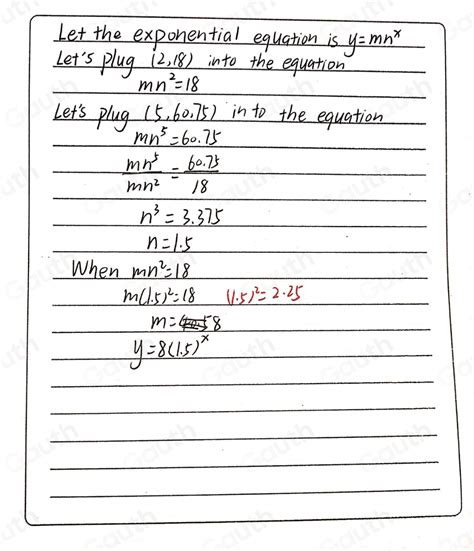 Let the exponential equation is y=mnˣ
Let's plug (2,18) into the equation
mn²=18
Let's plug (5,60.75) in to the equation
mn⁵=60.75
mn⁵/mn² = 60.75/18
n³ = 3.375
n=1.5
When mn²=18
m(1.5)²=18 (1.5)²=2.25
m= 8
y=8(1.5)ˣ
Gauth